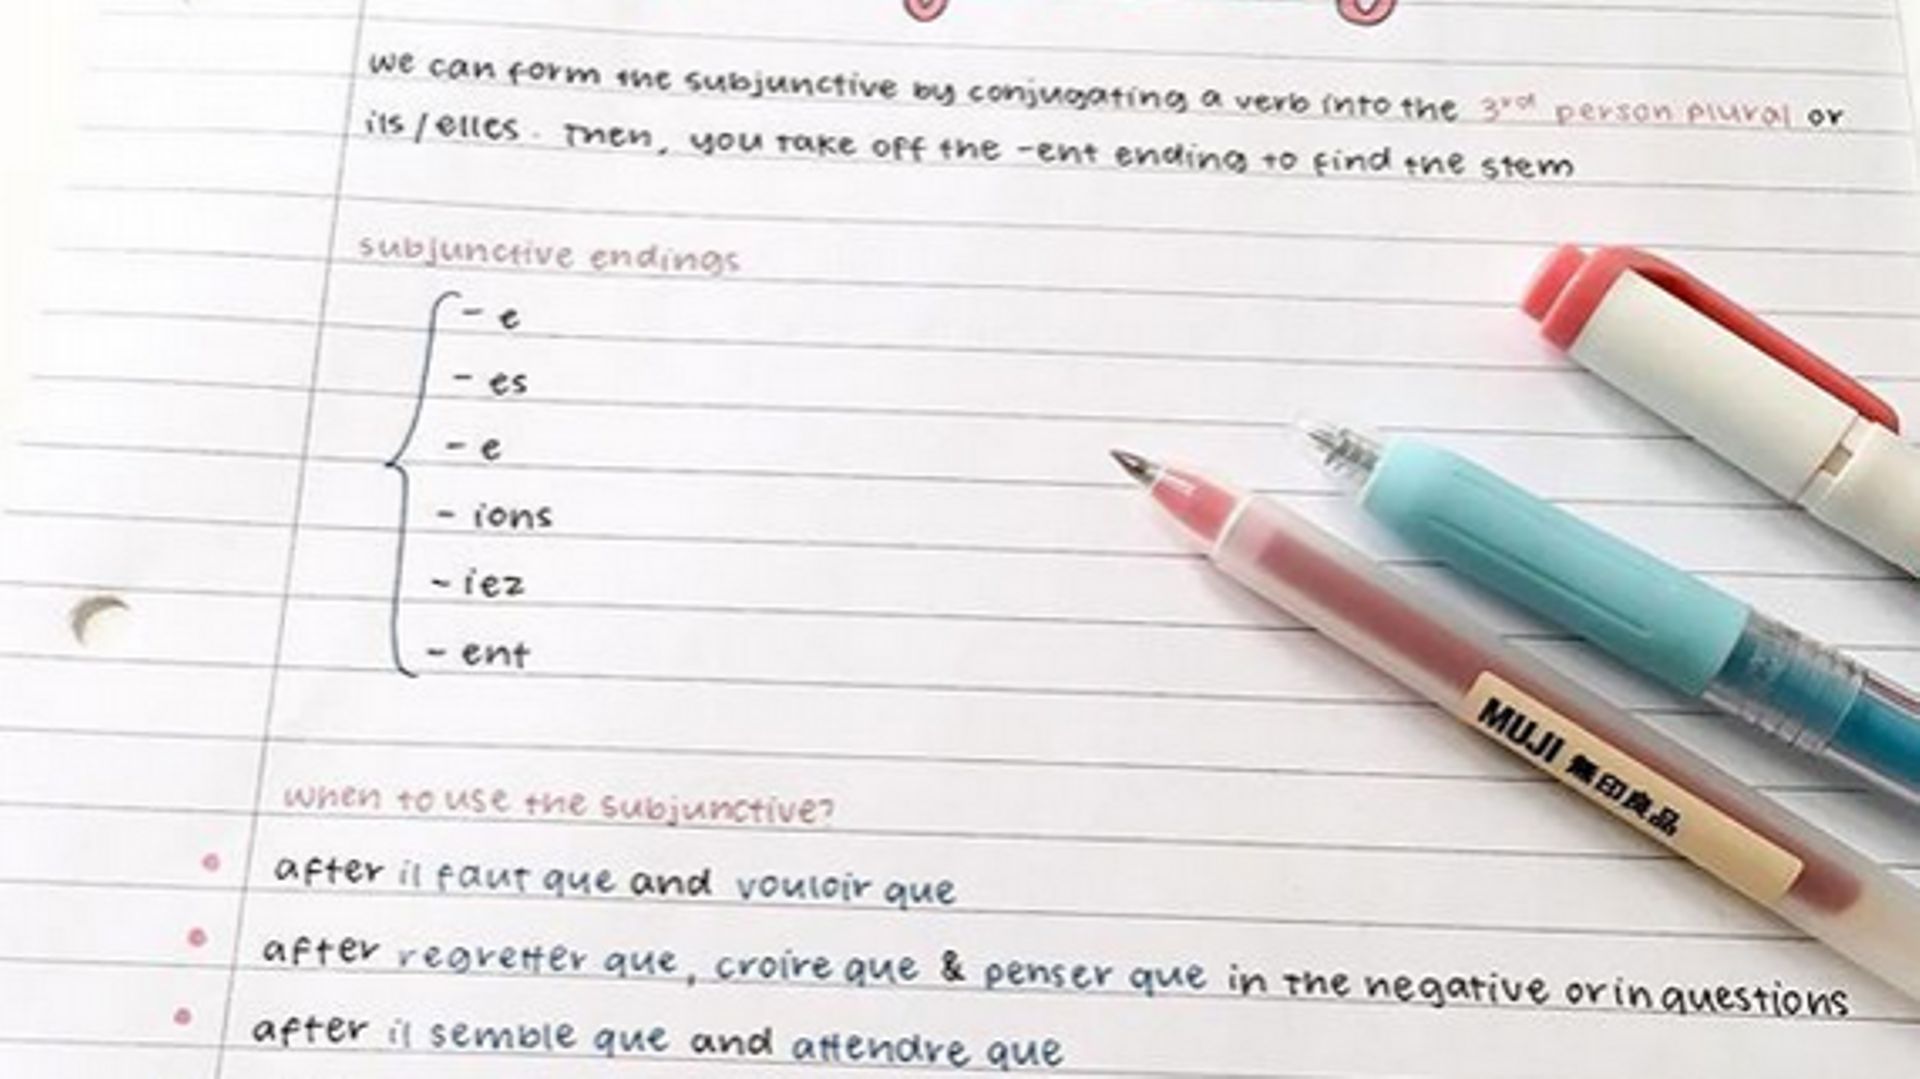 we can form the subjunctive by conjugating a verb into the 3rd person plural or
ils/elles. Then, you take off the -ent ending to find the stem
subjunctive endings
- e
- es
- e
- ions
- iez
- ent
when to use the subjunctive?
• after il faut que and vouloir que
• after regretter que, croire que & penser que in the negative or in questions
• after il semble que and attendre que
MUJI 無印良品